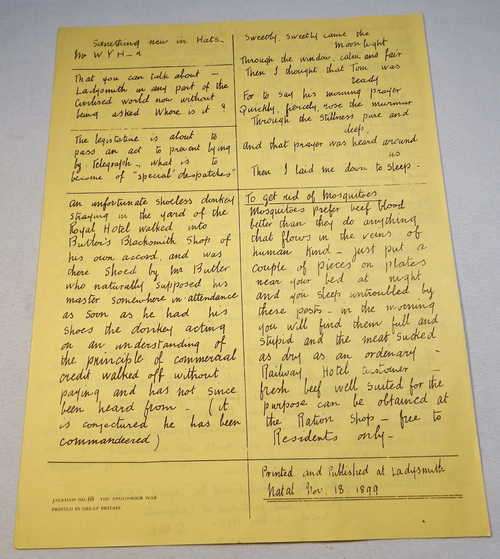 Something new in Hats_
Mr W Y H_r
That you can talk about _
Ladysmith in any part of the
Civilised world now without
being asked Where is it ?
The legislative is about to
pass an act to prevent lying
by Telegraph _ what is to
become of "special" despatches"
An unfortunate shoeless donkey
straying in the yard of the
Royal Hotel walked into
Butler's Blacksmith Shop of
his own accord, and was
there shoed by Mr Butler
who naturally supposed his
master somewhere in attendance
as soon as he had his
shoes the donkey acting
on an understanding of
the principle of commercial
credit walked off without
paying and has not since
been heard from _ (it
is conjectured he has been
commandeered)
JACKDAW NO. 68 THE ANGLO-BOER WAR
PRINTED IN GREAT BRITAIN
Sweetly, sweetly came the
Moonlight
Through the window, calm and fair
Then I thought that Tom was
ready
For to say his morning prayer
Quickly, fiercely, rose the murmur
Through the stillness pure and
deep,
And that prayer was heard around
us
Then I laid me down to sleep _
To get rid of Mosquitoes
Mosquitoes prefer beef blood
better than they do anything
that flows in the veins of
human kind _ just put a
couple of pieces on plates
near your bed at night
and you sleep untroubled by
these pests _ in the morning
you will find them full and
stupid and the meat sucked
as dry as an ordenary _
Railway Hotel customer _
fresh beef well suited for the
purpose can be obtained at
the Ration Shop _ free to
Residents only _
Printed and Published at Ladysmith
Natal Nov. 18 1899